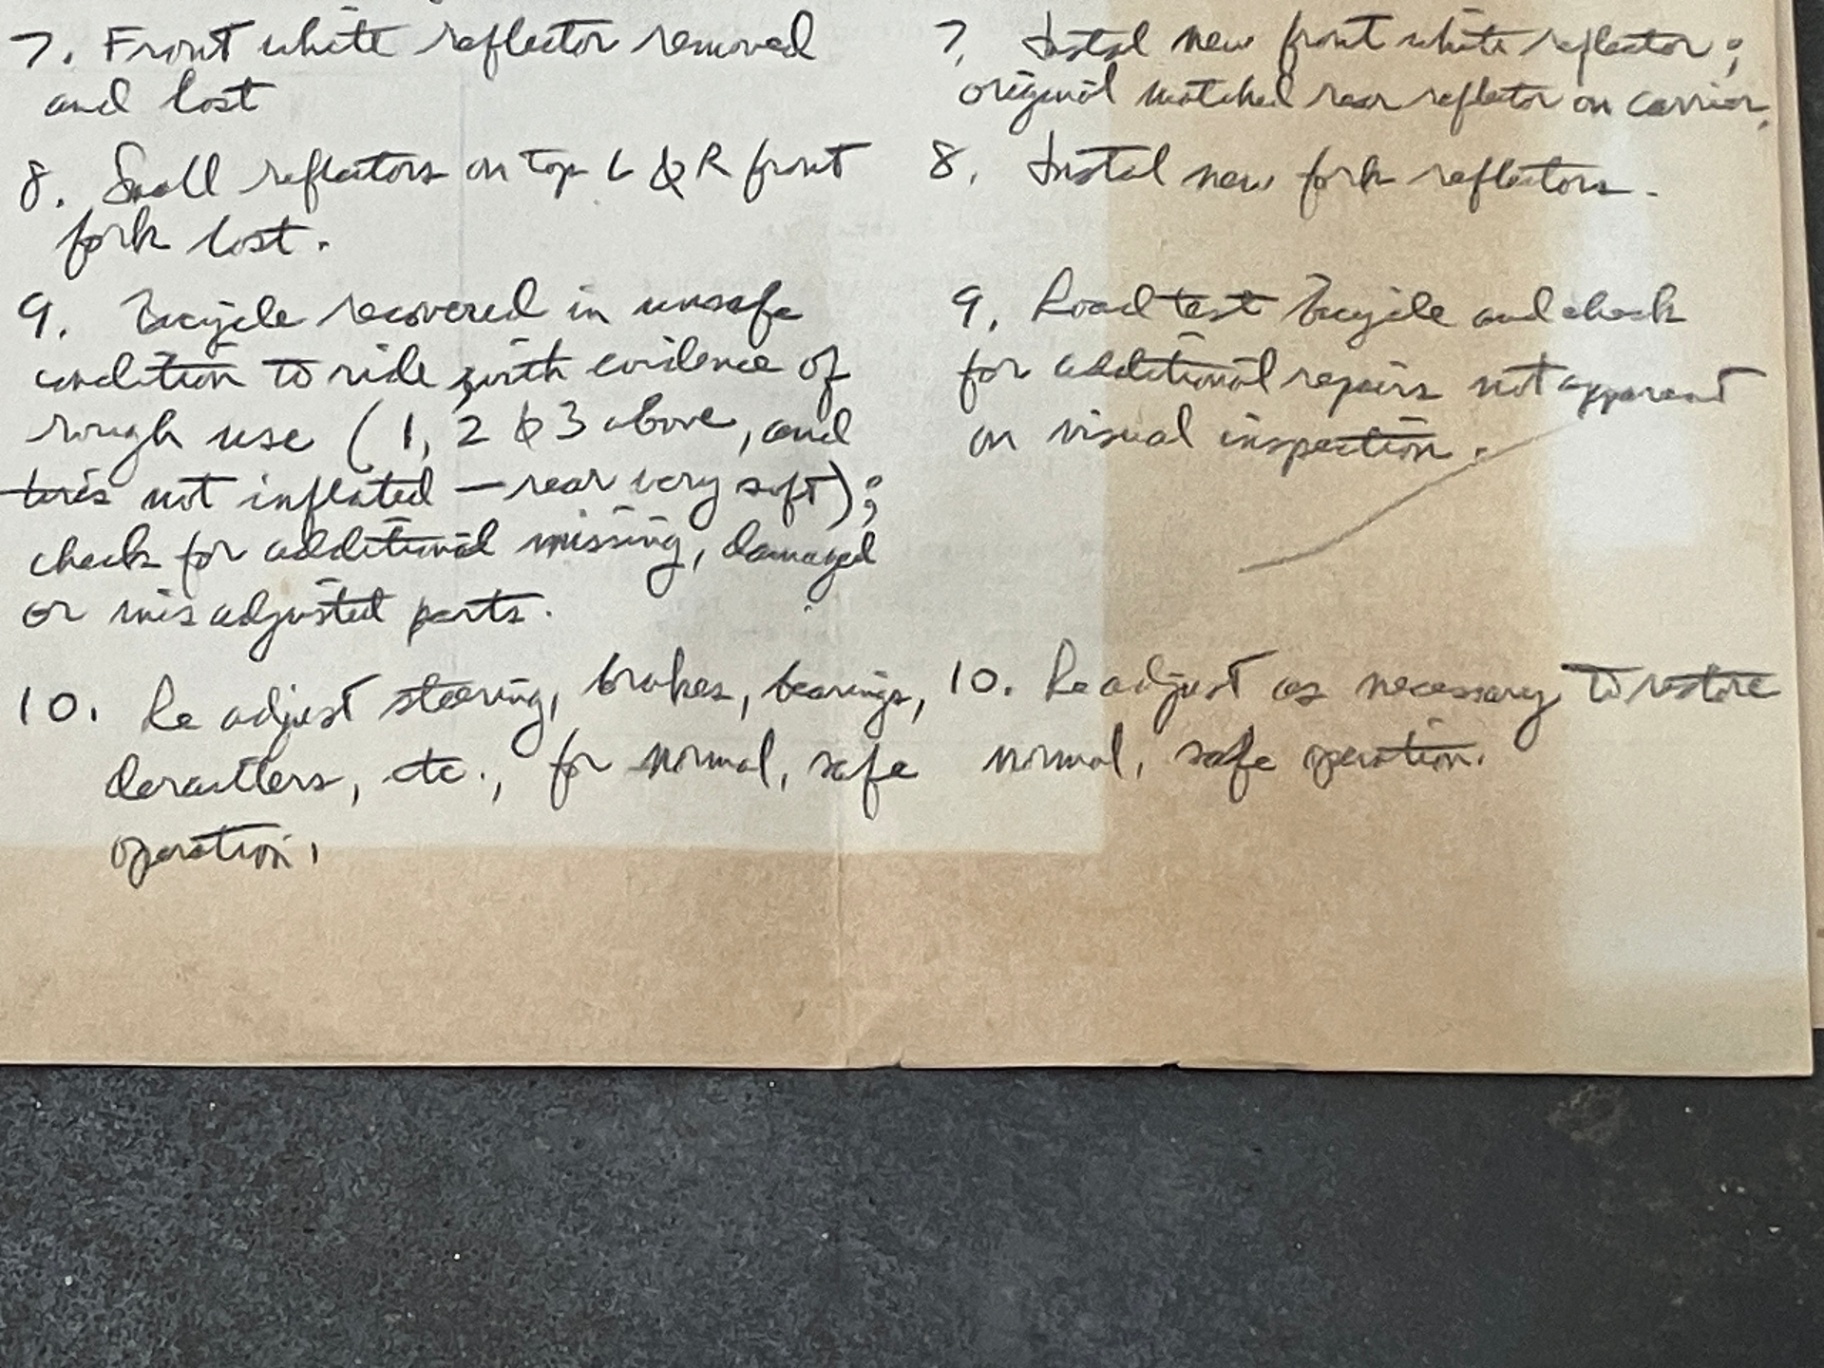 7. Front white reflector removed
and lost
8. Small reflectors on top L & R front
fork lost.
9. Bicycle recovered in unsafe
condition to ride, with evidence of
rough use (1, 2 & 3 above, and
tires not inflated — rear very soft);
check for additional missing, damaged
or misadjusted parts.
10. Readjust steering, brakes, bearings,
derailleurs, etc., for normal, safe
operation.
7. Instal new front white reflector;
original matched rear reflector on carrier.
8. Instal new fork reflectors.
9. Road test bicycle and check
for additional repairs not apparent
on visual inspection.
10. Readjust as necessary to restore
normal, safe operation.